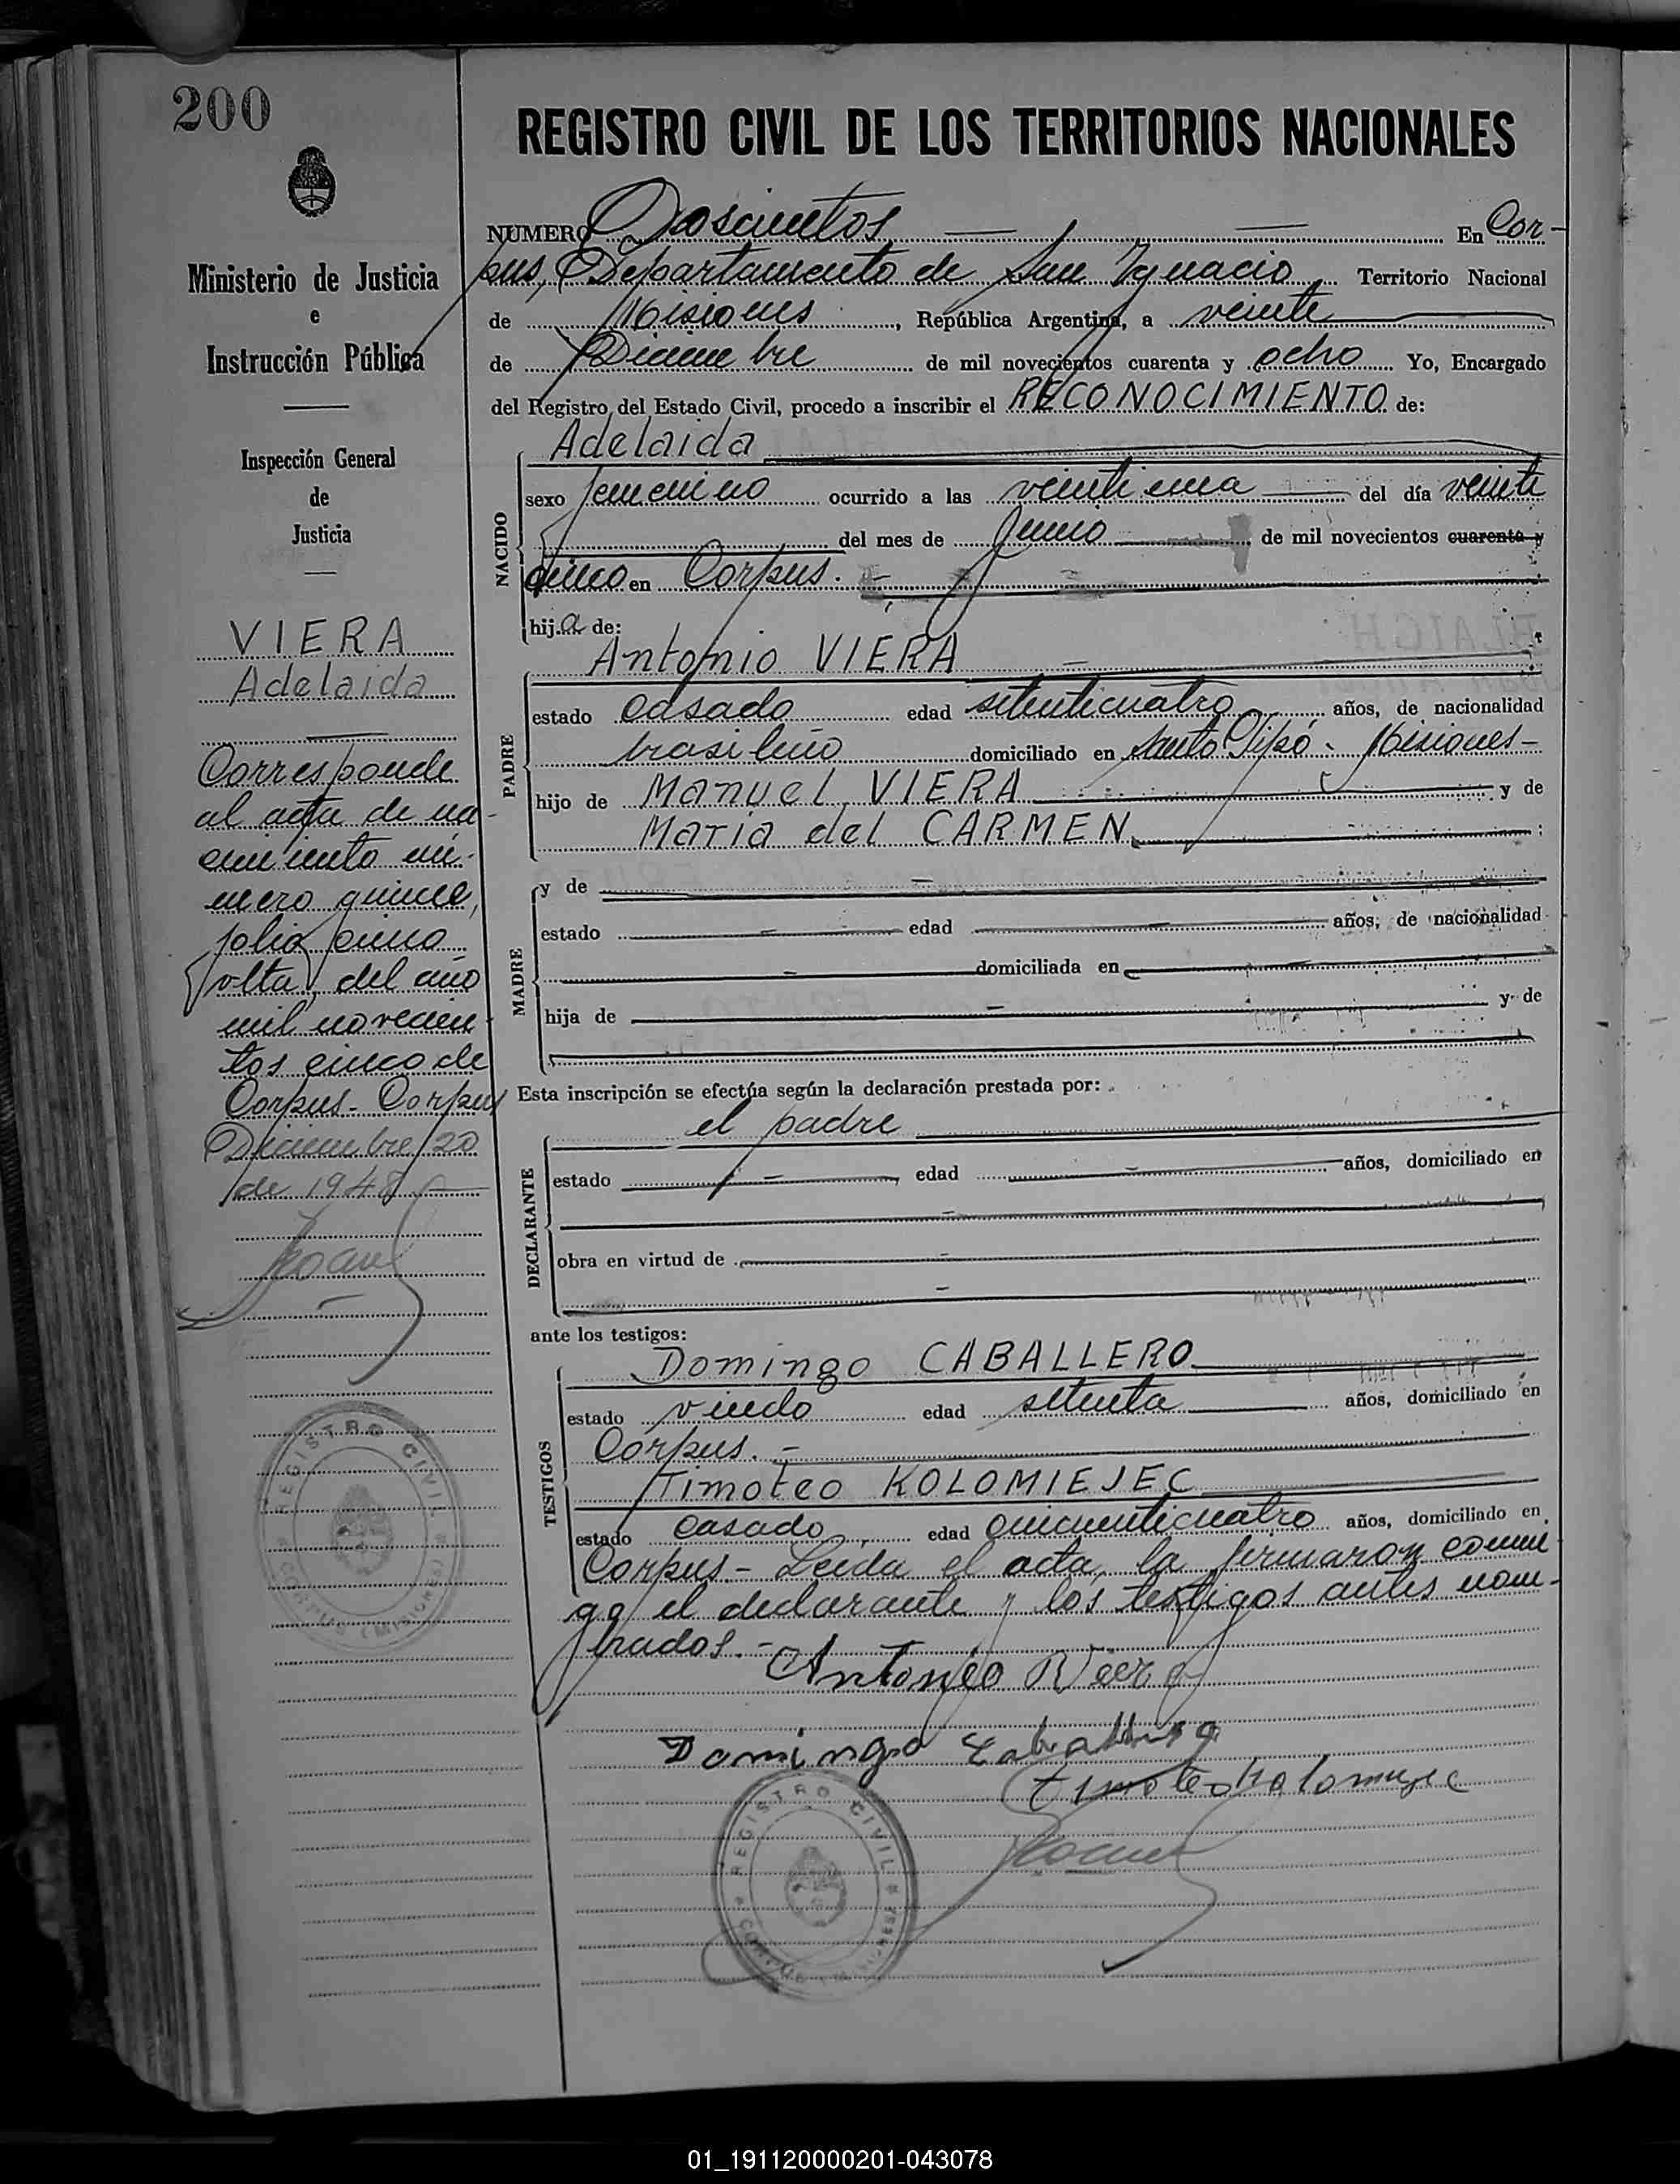 200
REGISTRO CIVIL DE LOS TERRITORIOS NACIONALES
Ministerio de Justicia
e
Instrucción Pública
Inspección General
de
Justicia
VIERA
Adelaida
Corresponde
al acta de na-
cimiento nú-
mero quince,
folio cinco
volta, del año
mil novecien-
tos cinco de
Corpus.- Corpus
Diciembre/20
de 1948
REGISTRO CIVIL
CORPUS (MISIONES)
NUMERO Doscientos En Cor-
pus, Departamento de San Ignacio Territorio Nacional
de Misiones, República Argentina, a veinte
de Diciembre de mil novecientos cuarenta y ocho Yo, Encargado
del Registro del Estado Civil, procedo a inscribir el RECONOCIMIENTO de:
NACIDO
Adelaida
sexo femenino ocurrido a las veintiuna del día veinte
del mes de Junio de mil novecientos cuarenta y
cinco en Corpus.-
hija de:
PADRE
Antonio VIERA
estado casado edad setenticuatro años, de nacionalidad
brasileño domiciliado en Santo Pipó - Misiones-
hijo de Manuel VIERA y de
María del CARMEN ;
MADRE
y de
estado edad años, de nacionalidad
domiciliada en
hija de y de
Esta inscripción se efectúa según la declaración prestada por:
DECLARANTE
el padre
estado edad años, domiciliado en
obra en virtud de
ante los testigos:
TESTIGOS
Domingo CABALLERO
estado viudo edad setenta años, domiciliado en
Corpus.-
Timoteo KOLOMIEJEC
estado casado edad cincuenticuatro años, domiciliado en
Corpus.- Leída el acta, la firmaron conmi
go el declarante y los testigos antes nom-
brados.-
Antonio Viera
Domingo Caballero
timoteo Kolomiejec
REGISTRO CIVIL
CORPUS (MISIONES)
01_191120000201-043078